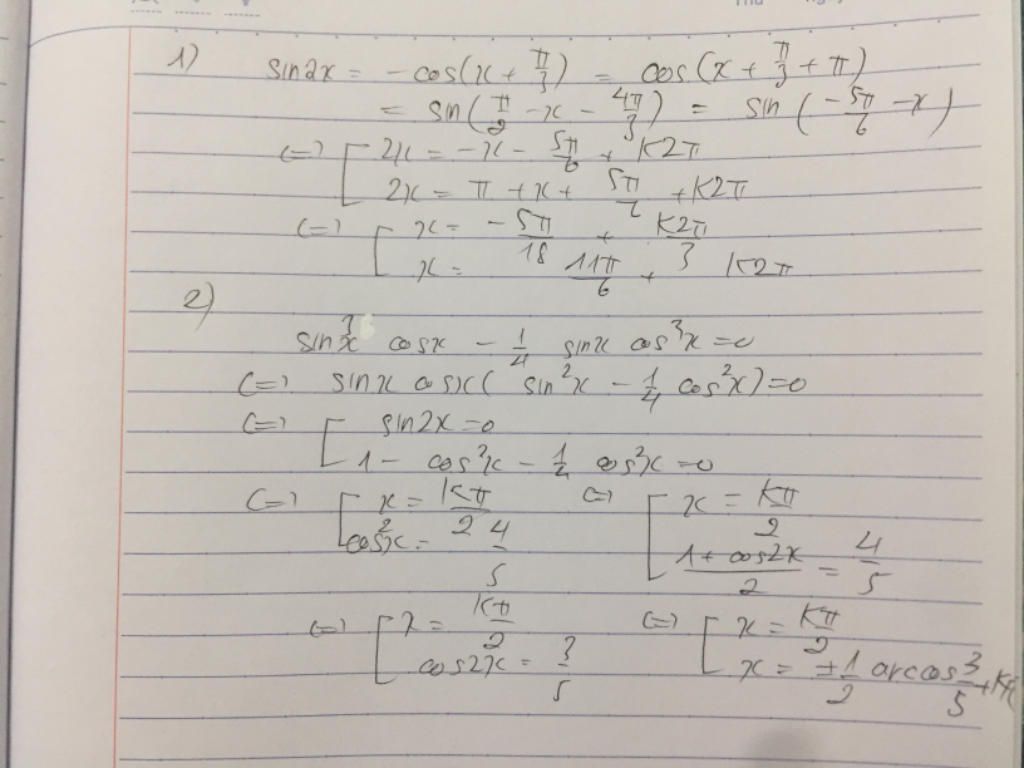 1) sin2x = -cos(x + π/3) = cos(x + π/3 + π)
= sin(π/2 - x - 4π/3) = sin(-5π/6 - x)
(=) [ 2x = -x - 5π/6 + K2π
2x = π + x + 5π/6 + K2π
(=) [ x = -5π/18 + K2π/3
x = 11π/6 + K2π
2)
sin³x cosx - 1/4 sinx cos³x = 0
(=) sinx cosx( sin²x - 1/4 cos²x) = 0
(=) [ sin2x = 0
1 - cos²x - 1/4 cos²x = 0
(=) [ x = Kπ/2 (=) [ x = Kπ/2
cos²x = 4/5 (1 + cos2x)/2 = 4/5
(=) [ x = Kπ/2 (=) [ x = Kπ/2
cos2x = 3/5 x = ±1/2 arccos 3/5 + Kπ